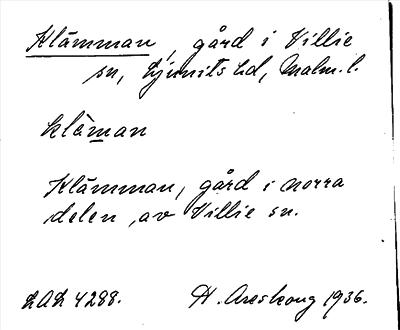 Klämman, gård i Villie
sn, Ljunits hd, Malm. l.
kläman
Klämman, gård i norra
delen av Villie sn.
LAL 4288. H. Areskoug 1936.